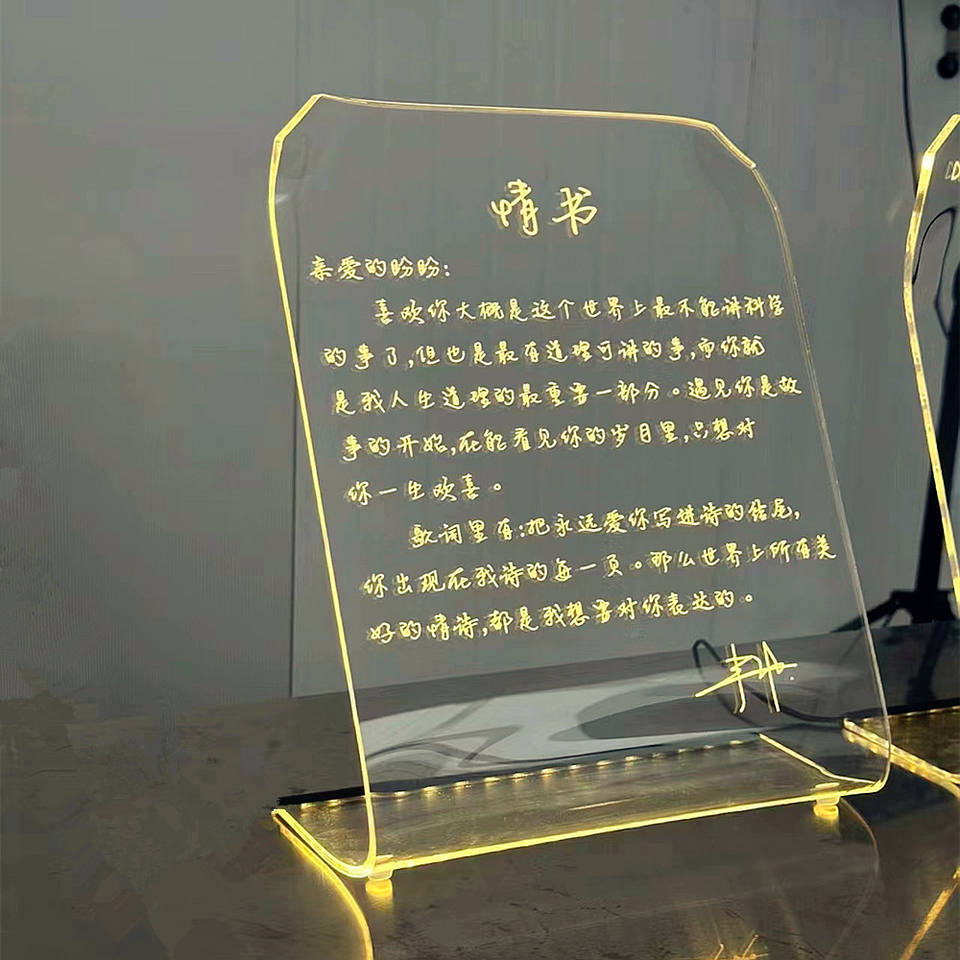 情书
亲爱的盼盼:
喜欢你大概是这个世界上最不能讲科学
的事了,但也是最有道理可讲的事,而你就
是我人生道理的最重要一部分。遇见你是故
事的开始,在能看见你的岁月里,只想对
你一生欢喜。
歌词里有:把永远爱你写进诗的结尾,
你出现在我诗的每一页。那么世界上所有美
好的情诗,都是我想要对你表达的。